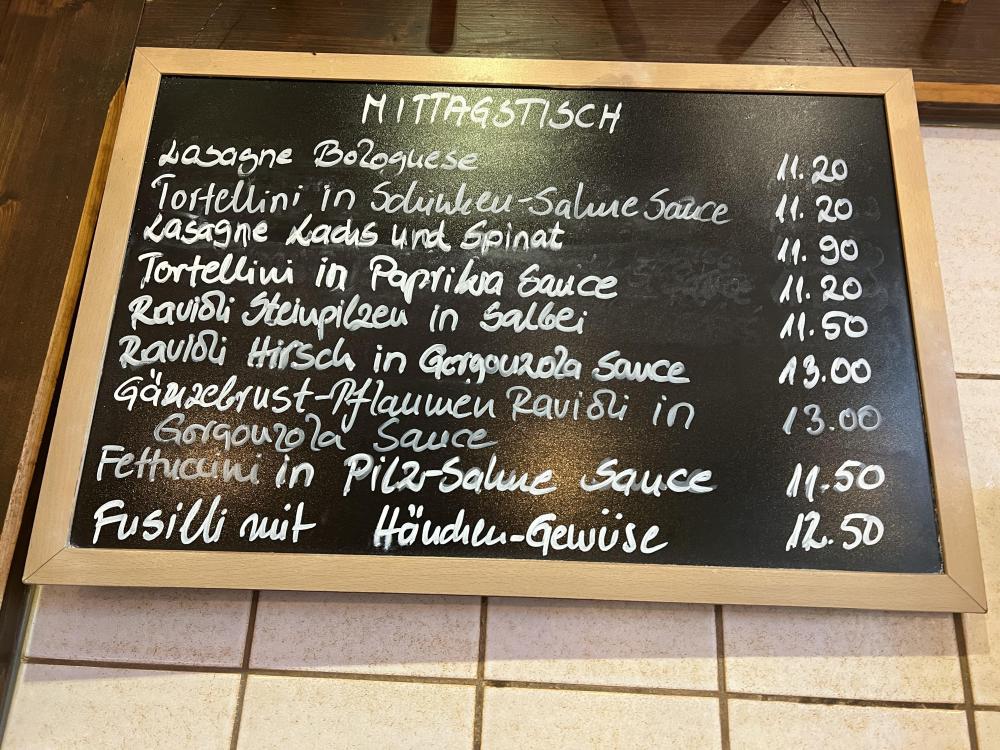 MITTAGSTISCH
Lasagne Bolognese 11.20
Tortellini in Schinken-Sahne Sauce 11.20
Lasagne Lachs und Spinat 11.90
Tortellini in Paprika Sauce 11.20
Ravioli Steinpilzen in Salbei 11.50
Ravioli Hirsch in Gorgonzola Sauce 13.00
Gänzebrust-Pflaumen Ravioli in 13.00
Gorgonzola Sauce
Fettuccini in Pilz-Sahne Sauce 11.50
Fusilli mit Hänchen-Gewüse 12.50